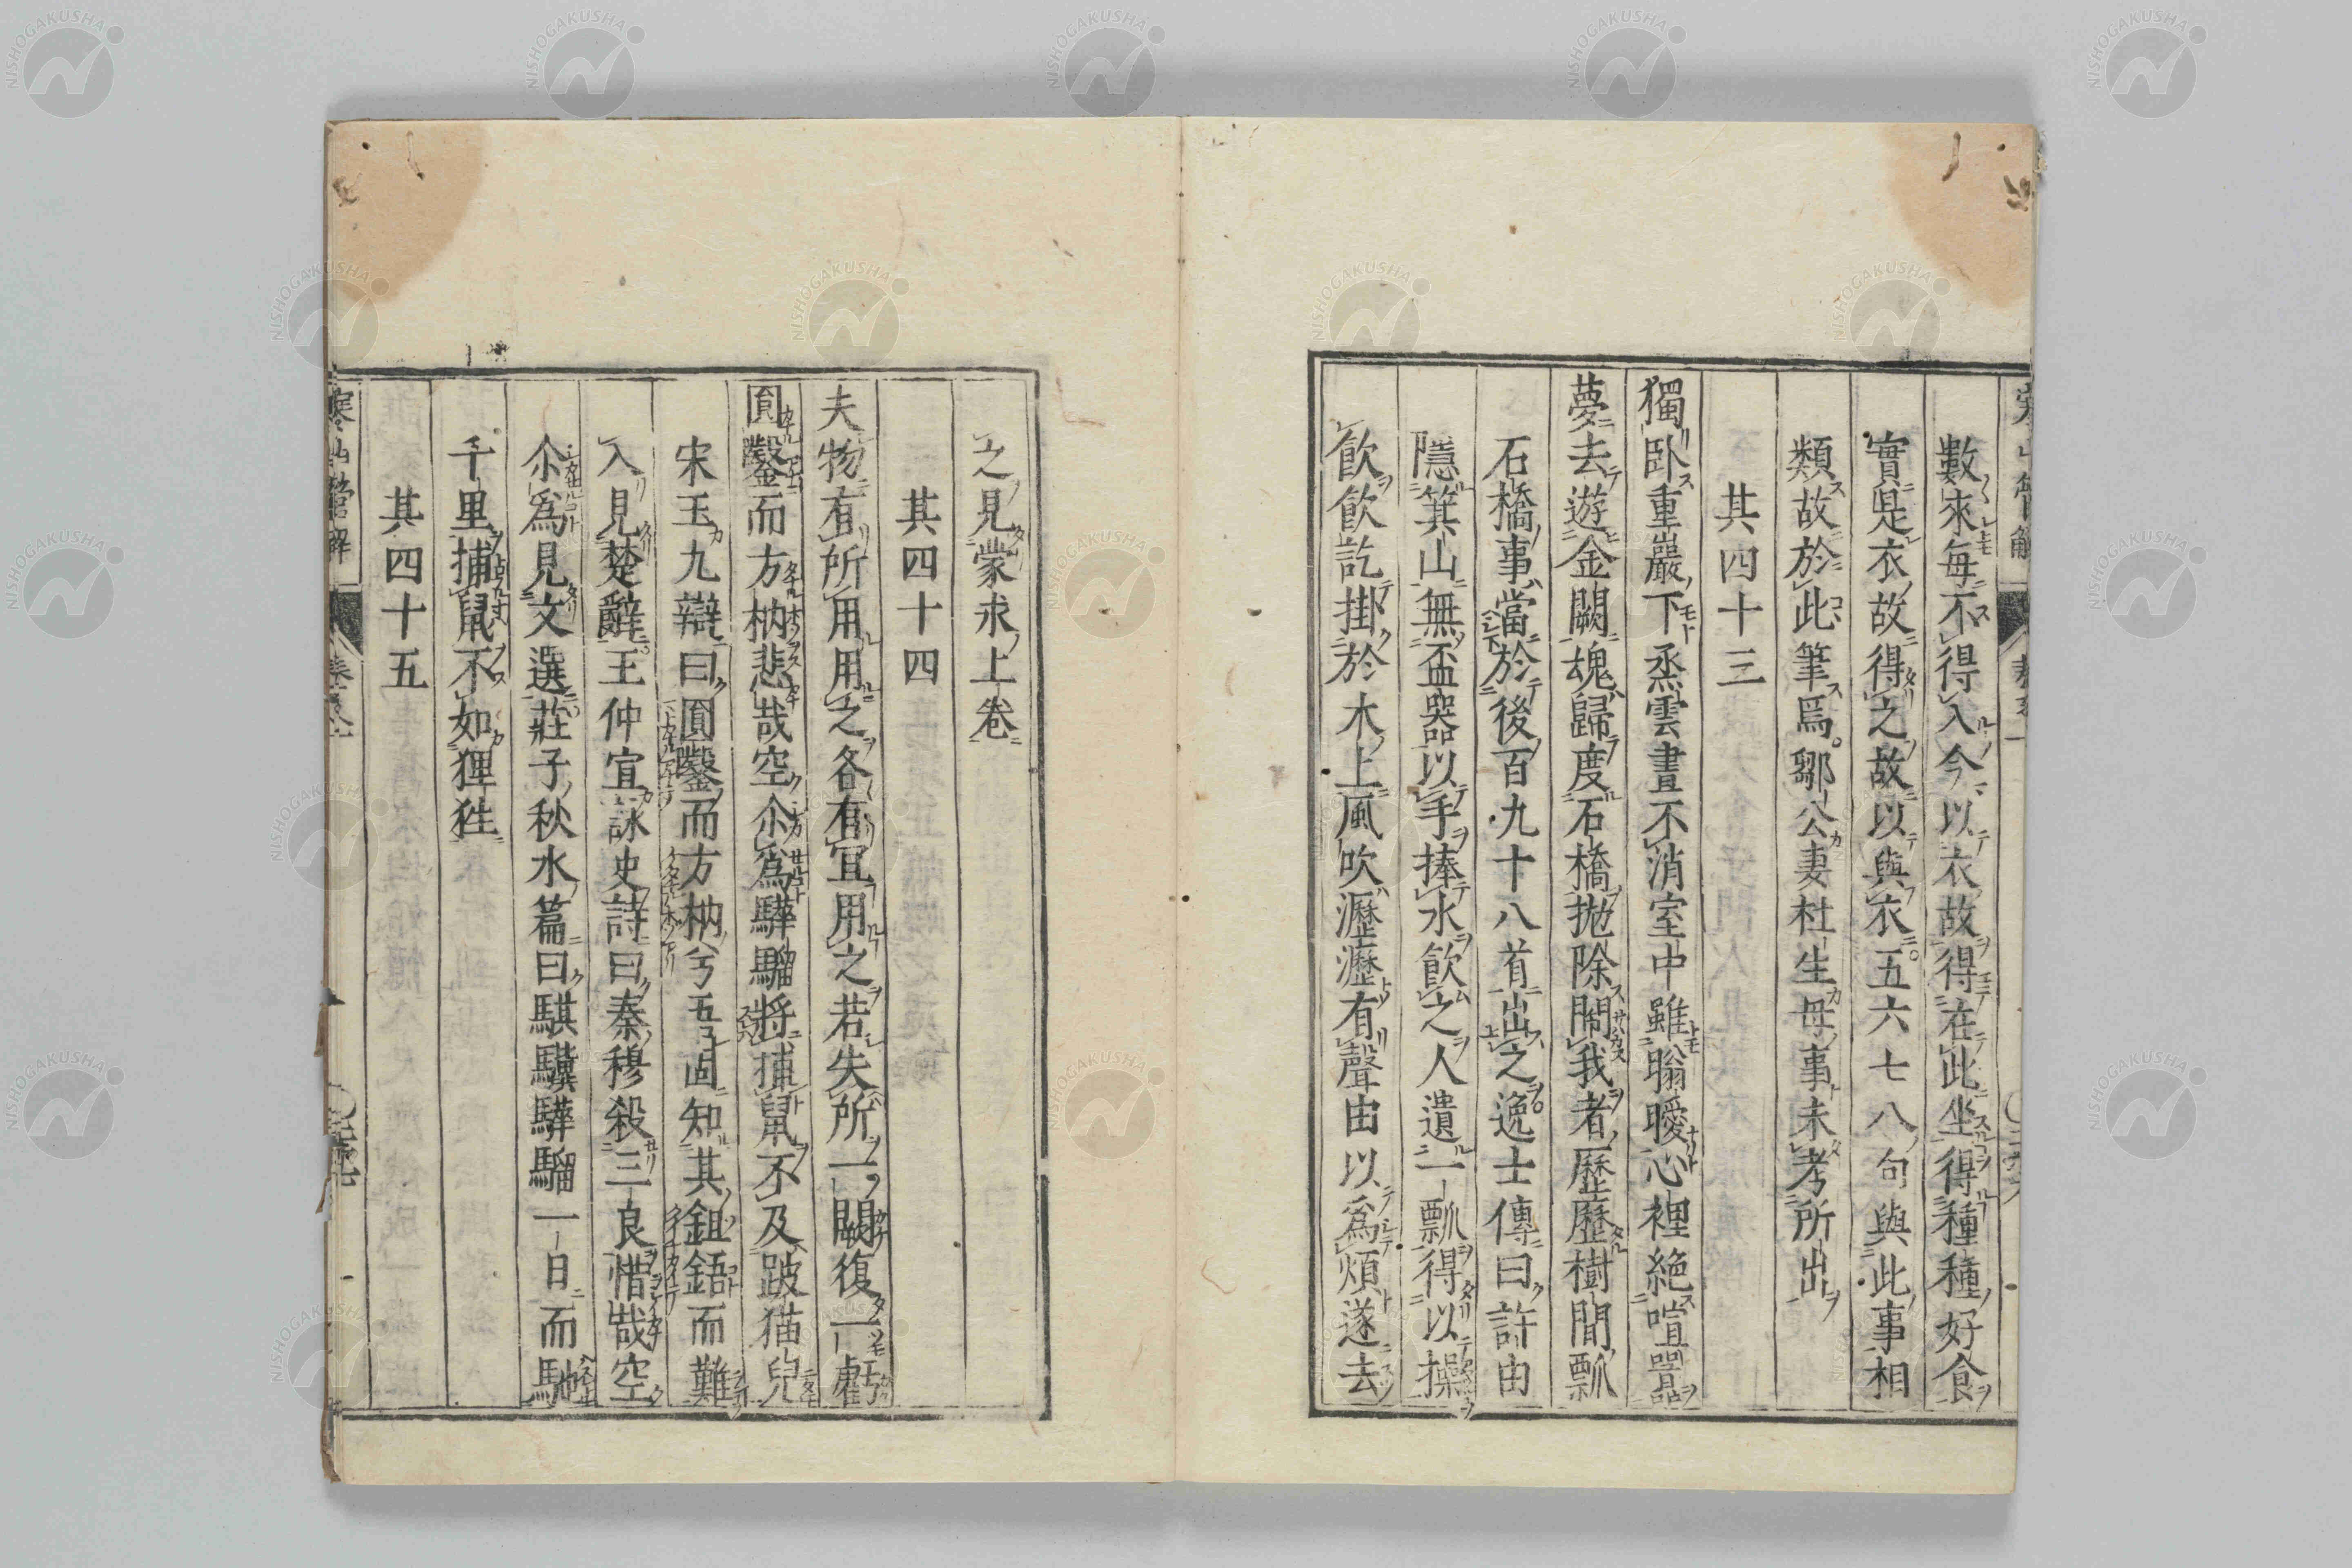 數來毎不得入今以衣故得在此坐得種種好食
實是衣故得之故以與衣五六七八句與此事相
類故於此筆焉鄒公妻杜生母事未考所出
其四十三
獨臥重巖下烝雲晝不消室中雖暡曖心裡絶喧囂
夢去遊金闕魂歸度石橋抛除閙我者歷歷樹間瓢
石橋事當於後百九十八首出之逸士傳曰許由
隱箕山無盃器以手捧水飮之人遺一瓢得以操
飮飮訖掛於木上風吹瀝瀝有聲由以爲煩遂去
之見蒙求上卷
其四十四
夫物有所用用之各有宜用之若失所一闕復一虧
圓鑿而方枘悲哉空尒爲驊騮將捕鼠不及跛猫兒
宋玉九辯曰圓鑿而方枘兮吾固知其鉏鋙而難
入見楚辭王仲宣詠史詩曰秦穆殺三良惜哉空
尒爲見文選莊子秋水篇曰騏驥驊騮一日而馳
千里捕鼠不如狸狌
其四十五
寒山管解
NISHOGAKUSHA